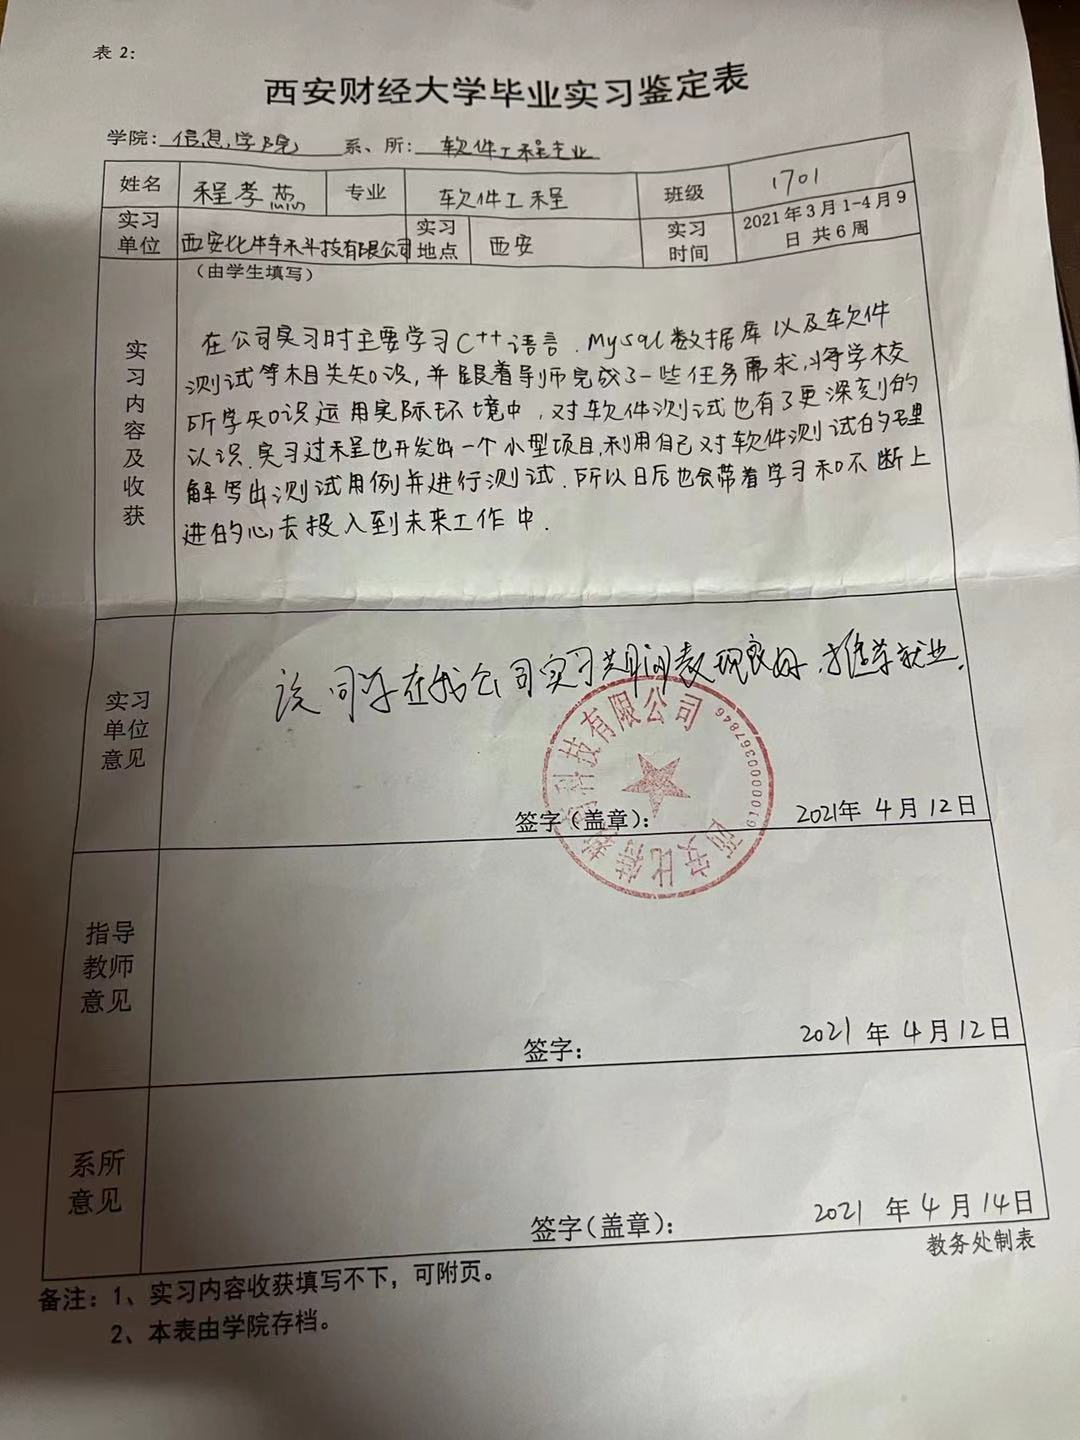 表 2：
西安财经大学毕业实习鉴定表
学院：信息学院 系、所：软件工程专业
姓名 程孝 专业 软件工程 班级 1701
实习单位 西安比特科技有限公司 实习地点 西安 实习时间 2021年3月1-4月9日 共6周
（由学生填写）
实习内容及收获
在公司实习时主要学习C++语言、Mysql数据库以及软件
测试等相关知识，并跟着导师完成了一些任务需求，将学校
所学知识运用实际环境中，对软件测试也有了更深刻的
认识．实习过程也开发出一个小型项目，利用自己对软件测试的理
解写出测试用例并进行测试．所以日后也会带着学习和不断上
进的心去投入到未来工作中．
实习单位意见
该同学在我公司实习期间表现良好，推荐就业．
科技有限公司
西安比特
6101000036784６
签字（盖章）： 2021年 4月 12日
指导教师意见
签字： 2021 年 4月12日
系所意见
签字（盖章）： 2021 年 4 月 14日
教务处制表
备注：1、实习内容收获填写不下，可附页。
2、本表由学院存档。